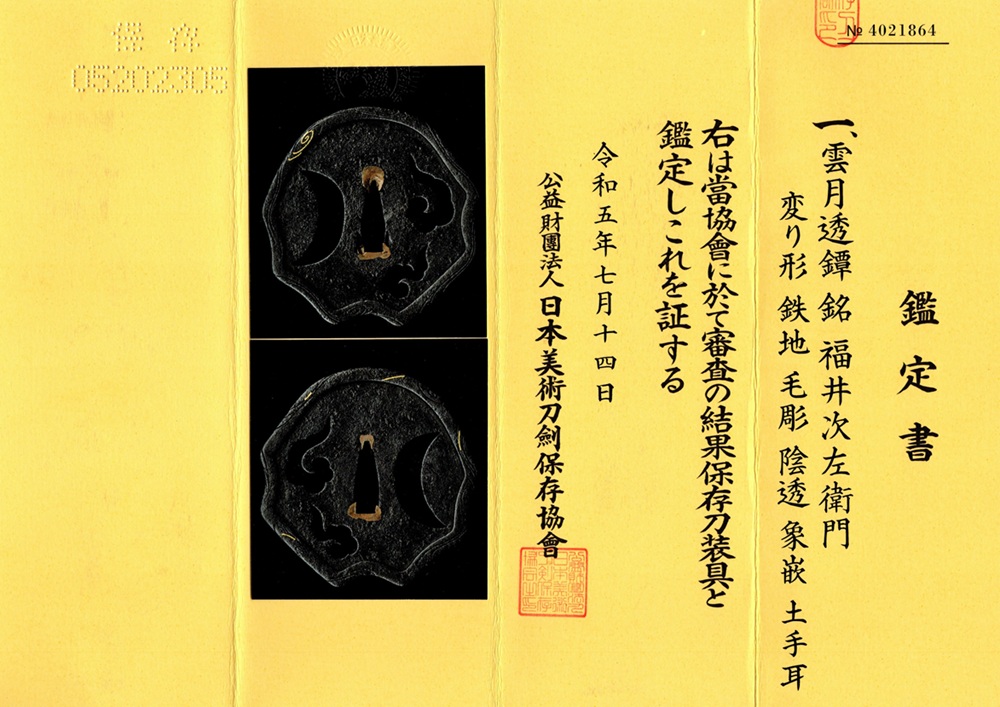 № 4021864
鑑定書
一、雲月透鐔 銘 福井次左衛門
変り形 鉄地 毛彫 陰透 象嵌 土手耳
右は當協會に於て審査の結果保存刀装具と
鑑定しこれを証する
令和五年七月十四日
公益財團法人 日本美術刀劍保存協會
保存
05202305